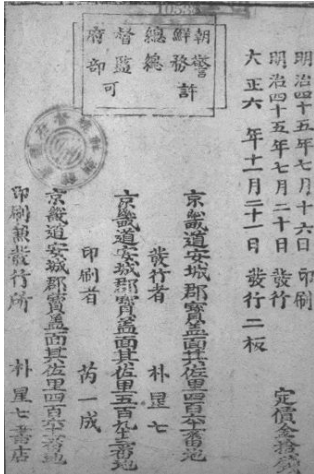 朝鮮總督府
警務總監部
許可
明治四十五年七月十六日 印刷
明治四十五年七月二十日 發行
大正六年十一月二十一日 發行二板
定價金拾錢
京畿道安城郡寶盖面其佐里四百六十二番地
發行者 朴星七
京畿道安城郡寶盖面其佐里五百九十二番地
印刷者 芮一成
京畿道安城郡寶盖面其佐里四百六十二番地
印刷兼發行所 朴星七書店